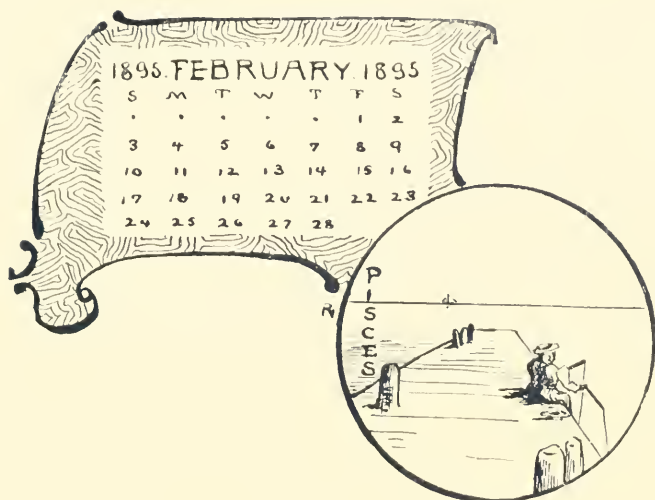 1895. FEBRUARY. 1895
S M T W T F S
. . . . . 1 2
3 4 5 6 7 8 9
10 11 12 13 14 15 16
17 18 19 20 21 22 23
24 25 26 27 28
PISCES